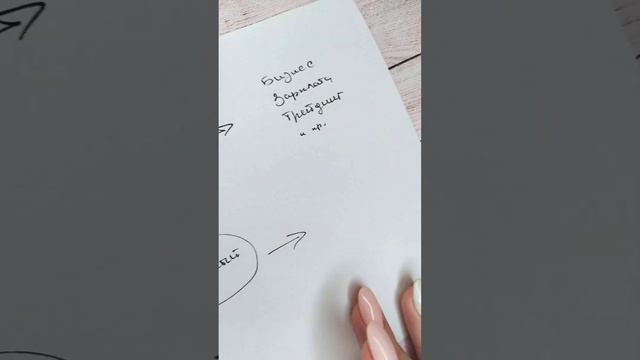 Бизнес
Зарплата,
Трейдинг
и пр.